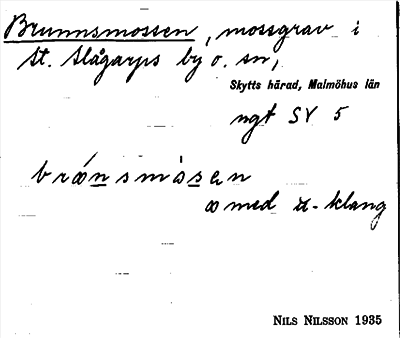 Brunnsmossen, mossgrav i
St. Slågarps by o. sn,
Skytts härad, Malmöhus län
ngt SV 5
brǿnsmåsen
ꝏ med u-klang
NILS NILSSON 1935